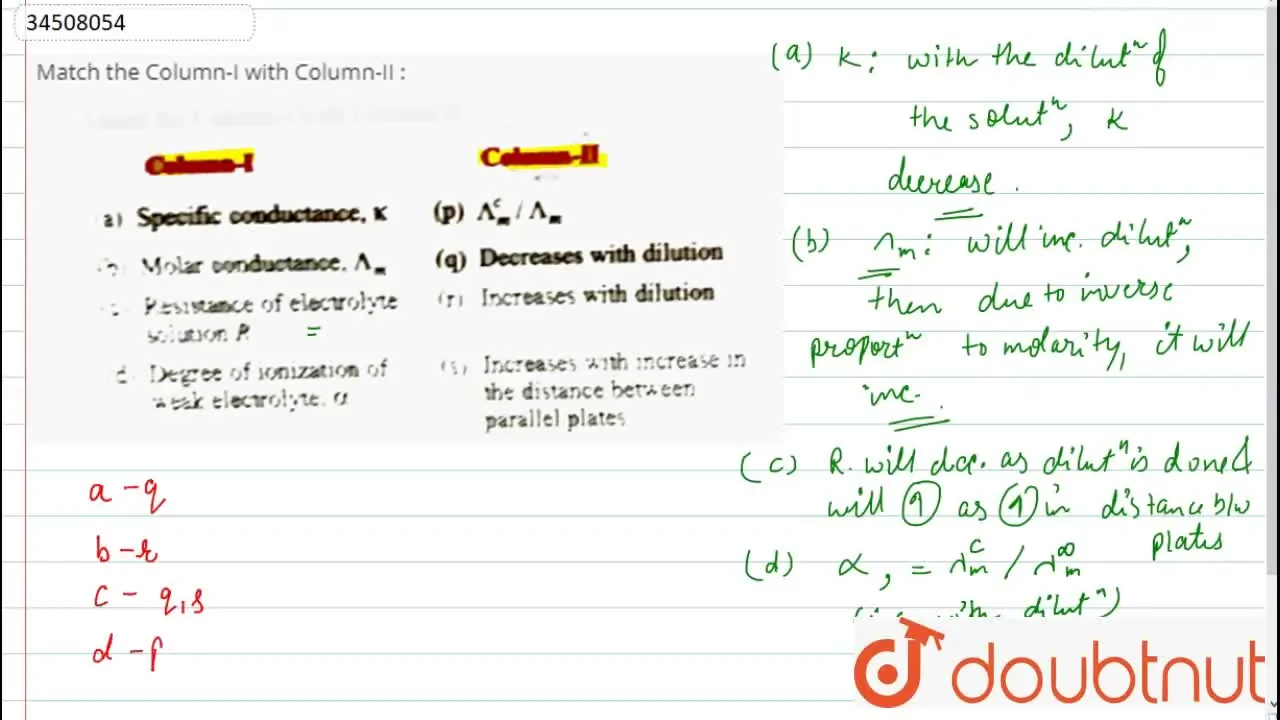 34508054
Match the Column-I with Column-II :
Column-I
Column-II
a) Specific conductance, κ
(p) Λᶜₘ / Λₘ
Molar conductance, Λₘ
(q) Decreases with dilution
Resistance of electrolyte
solution R =
(r) Increases with dilution
d Degree of ionization of
weak electrolyte, α
(s) Increases with increase in
the distance between
parallel plates
a - q
b - r
c - q, s
d - p
(a) K : with the dilutⁿ of
the solutⁿ, K
decrease.
(b) Λm : will inc. dilutⁿ,
then due to inverse
proportⁿ to molarity, it will
inc.
(c) R. will dec. as dilutⁿ is done &
will ↑ as ↑ in distance b/w
plates
(d) α, = λᶜm / λ∞m
with dilutⁿ)
doubtnut